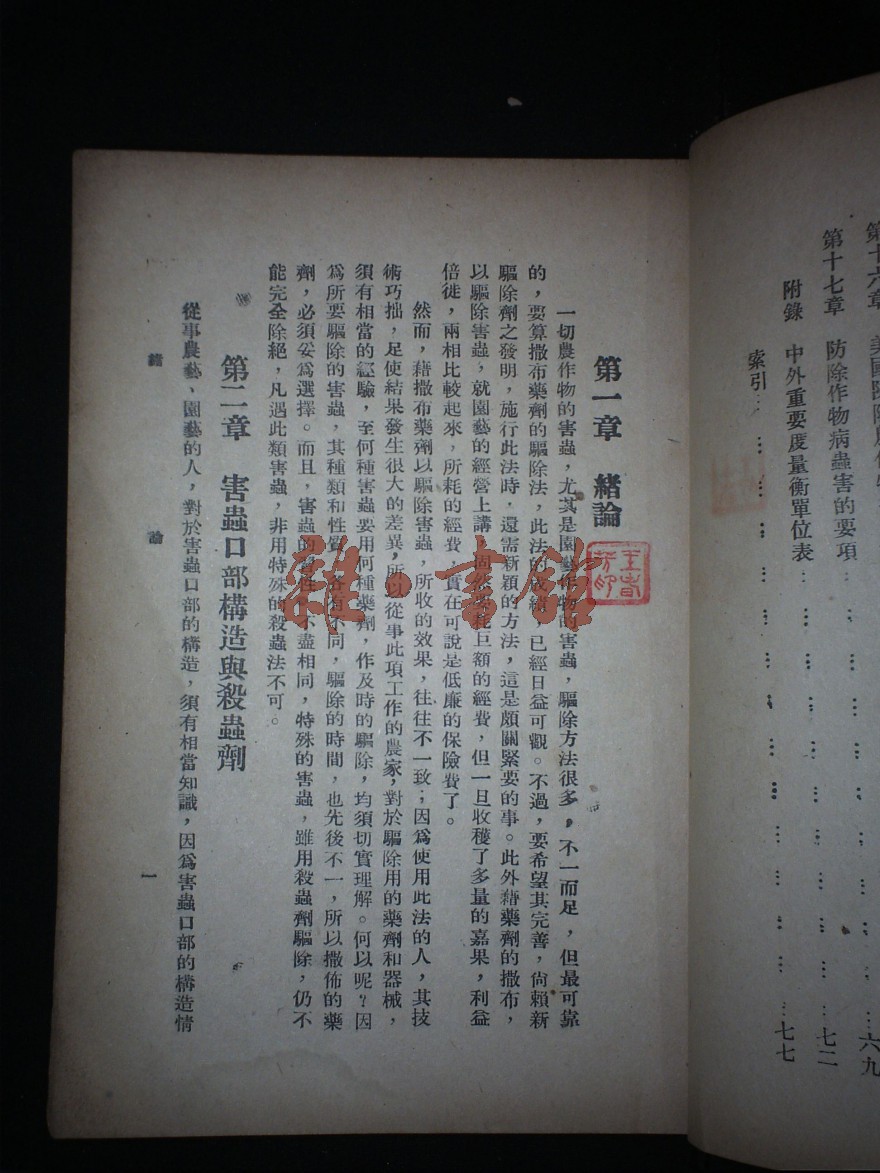 美國
第十七章　防除作物病蟲害的要項……七二
附錄　中外重要度量衡單位表……七七
索引……
六九
第一章　緒論
一切農作物的害蟲，尤其是園藝作物的害蟲，驅除方法很多，不一而足，但最可靠
的，要算撒布藥劑的驅除法，此法的成績，已經日益可觀。不過，要希望其完善，尙賴新
驅除劑之發明，施行此法時，還需新穎的方法，這是頗關緊要的事。此外藉藥劑的撒布，
以驅除害蟲，就園藝的經營上講，固然要耗巨額的經費，但一旦收穫了多量的嘉果，利益
倍徙，兩相比較起來，所耗的經費，實在可說是低廉的保險費了。
然而，藉撒布藥劑以驅除害蟲，所收的效果，往往不一致；因爲使用此法的人，其技
術巧拙，足使結果發生很大的差異，所以從事此項工作的農家，對於驅除用的藥劑和器械，
須有相當的經驗，至何種害蟲要用何種藥劑，作及時的驅除，均須切實理解。何以呢？因
爲所要驅除的害蟲，其種類和性質，各有不同，驅除的時間，也先後不一，所以撒佈的藥
劑，必須妥爲選擇。而且，害蟲的習性，不盡相同，特殊的害蟲，雖用殺蟲劑驅除，仍不
能完全除絕，凡遇此類害蟲，非用特殊的殺蟲法不可。
第二章　害蟲口部構造與殺蟲劑
從事農藝、園藝的人，對於害蟲口部的構造，須有相當知識，因爲害蟲口部的構造情
緒　論　一
雜·書館